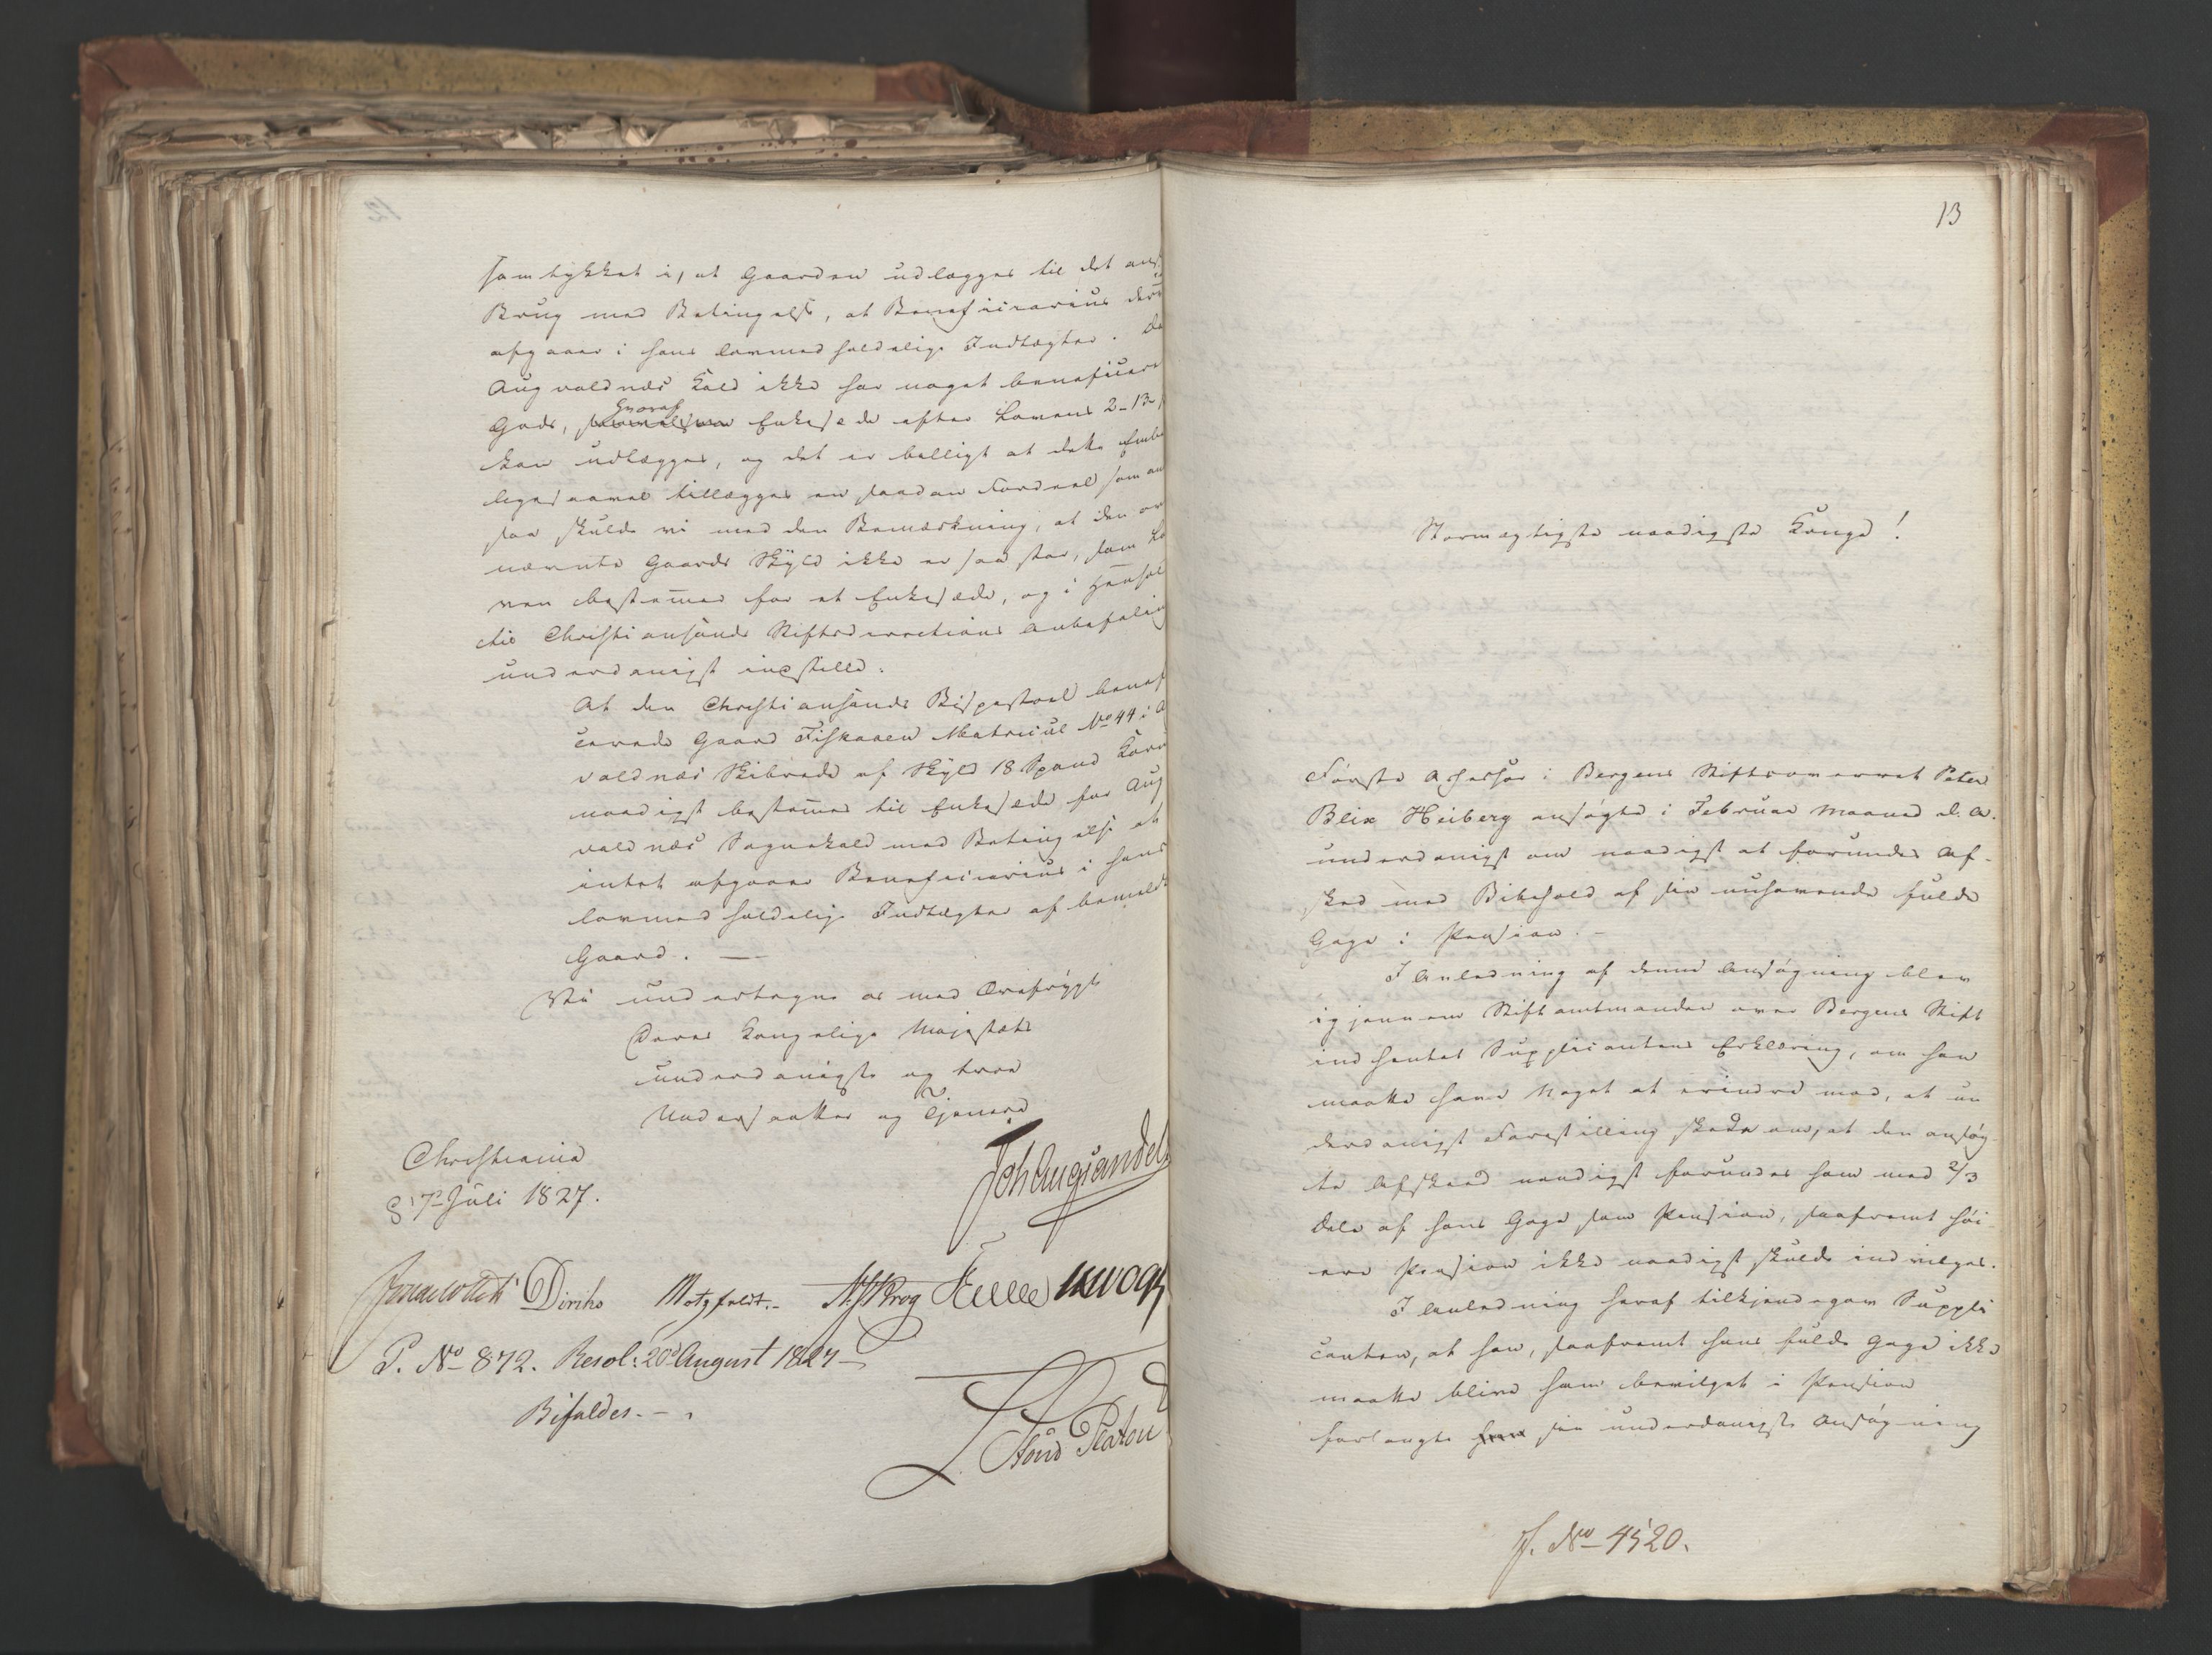 samtykket i, at Gaarden udlægges til det an
Brug med Betingelse, at Beneficiarius der
afgaaer i hans lovmedholdelige Indtægter. Da
Augvaldnæs Kald ikke har noget beneficeret
Gods, hvoraf Enkesæde efter Lovens 2-13-
kan udlægges, og det er billigt at dette Embe
ligesaavel tillægges en saadan Fordeel som an
saa skulde vi med den Bemærkning, at den om
nævnte Gaards Skyld ikke er saa stor, som Lo
ven bestemmer for et Enkesæde, og i Henhold
til Christiansands Stiftsdirections Anbefaling
underdanigst indstille:
At den Christiansands Bispestoel benefi
cerede Gaard Fiskaaen Matricul No 44 i A
valdnæs Skibrede af Skyld 18 Spand Korn
naadigst bestemmes til Enkesæde for Aug
valdnæs Sognekald med Betingelse at
intet afgaaer Beneficiarius i hans
lovmedholdelige Indtægter af bemeldte
Gaard. —
Vi undertegne os med Ærefrygt
Deres Kongelige Majestæts
underdanigste og troe
Undersaatter og Tjenere
Christiania
d 7 Juli 1827.
Joh Aug Sandels
Jonas Collett Diriks Motzfeldt.- Krog
P. No 872. Resol: 20d August 1827
Bifaldes. -
Stoud Platou
13
Stormægtigste naadigste Konge!
Første Assessor i Bergens Stiftsoverret Peter
Blix Heiberg ansøgte i Februar Maaned d. A.
underdanigst om naadigst at forundes Af-
sked med Bibehold af sin nuhavende fulde
Gage i Pension. -
I Anledning af denne Ansøgning blev
igjennem Stiftamtmanden over Bergens Stift
indhentet Supplicantens Erklæring, om han
maatte have Noget at erindre mod, at un
derdanigst Forestilling skede om, at den ansøg
te Afskeed naadigst forundes ham med 2/3
Dele af hans Gage som Pension, saafremt høi
ere Pension ikke naadigst skulde indvilges.
I Anledning heraf tilkjendegav Suppli
canten, at han, saafremt hans fulde Gage ikke
maatte blive ham bevilget i Pension
forlangte sin underdanigste Ansøgning
J. No 4520.